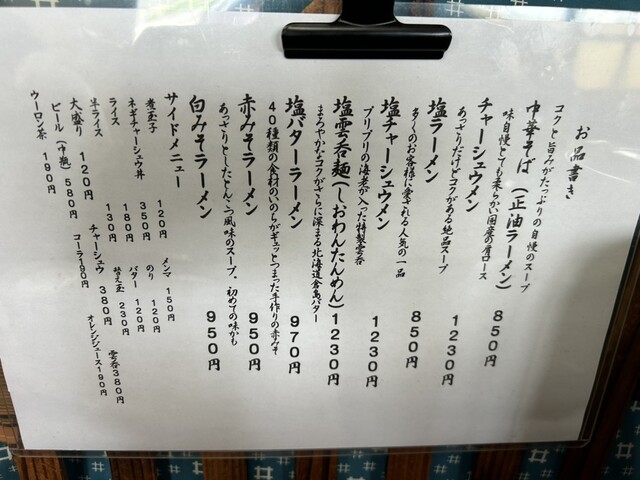 お品書き
コクと旨みがたっぷりの自慢のスープ
中華そば(正油ラーメン) 850円
味自慢とても柔らか国産の肩ロース
チャーシュウメン 1230円
あっさりだけどコクがある絶品スープ
塩ラーメン 850円
多くのお客様に愛される人気の一品
塩チャーシュウメン 1230円
プリプリの海老が入った特製雲呑
塩雲呑麺(しおわんたんめん) 1230円
まろやかなコクがさらに深まる北海道倉島バター
塩バターラーメン 970円
40種類の食材のいのちがギュッとつまった手作りの赤みそ
赤みそラーメン 950円
あっさりとしたとんこつ風味のスープ、初めての味かも
白みそラーメン 950円
サイドメニュー
煮玉子 120円 メンマ 150円
ネギチャーシュウ丼 350円 のり 120円
ライス 180円 バター 120円
半ライス 130円 替え玉 230円
大盛り 120円 チャーシュウ 380円 雲呑380円
ビール(中瓶)580円 コーラ190円 オレンジジュース190円
ウーロン茶 190円